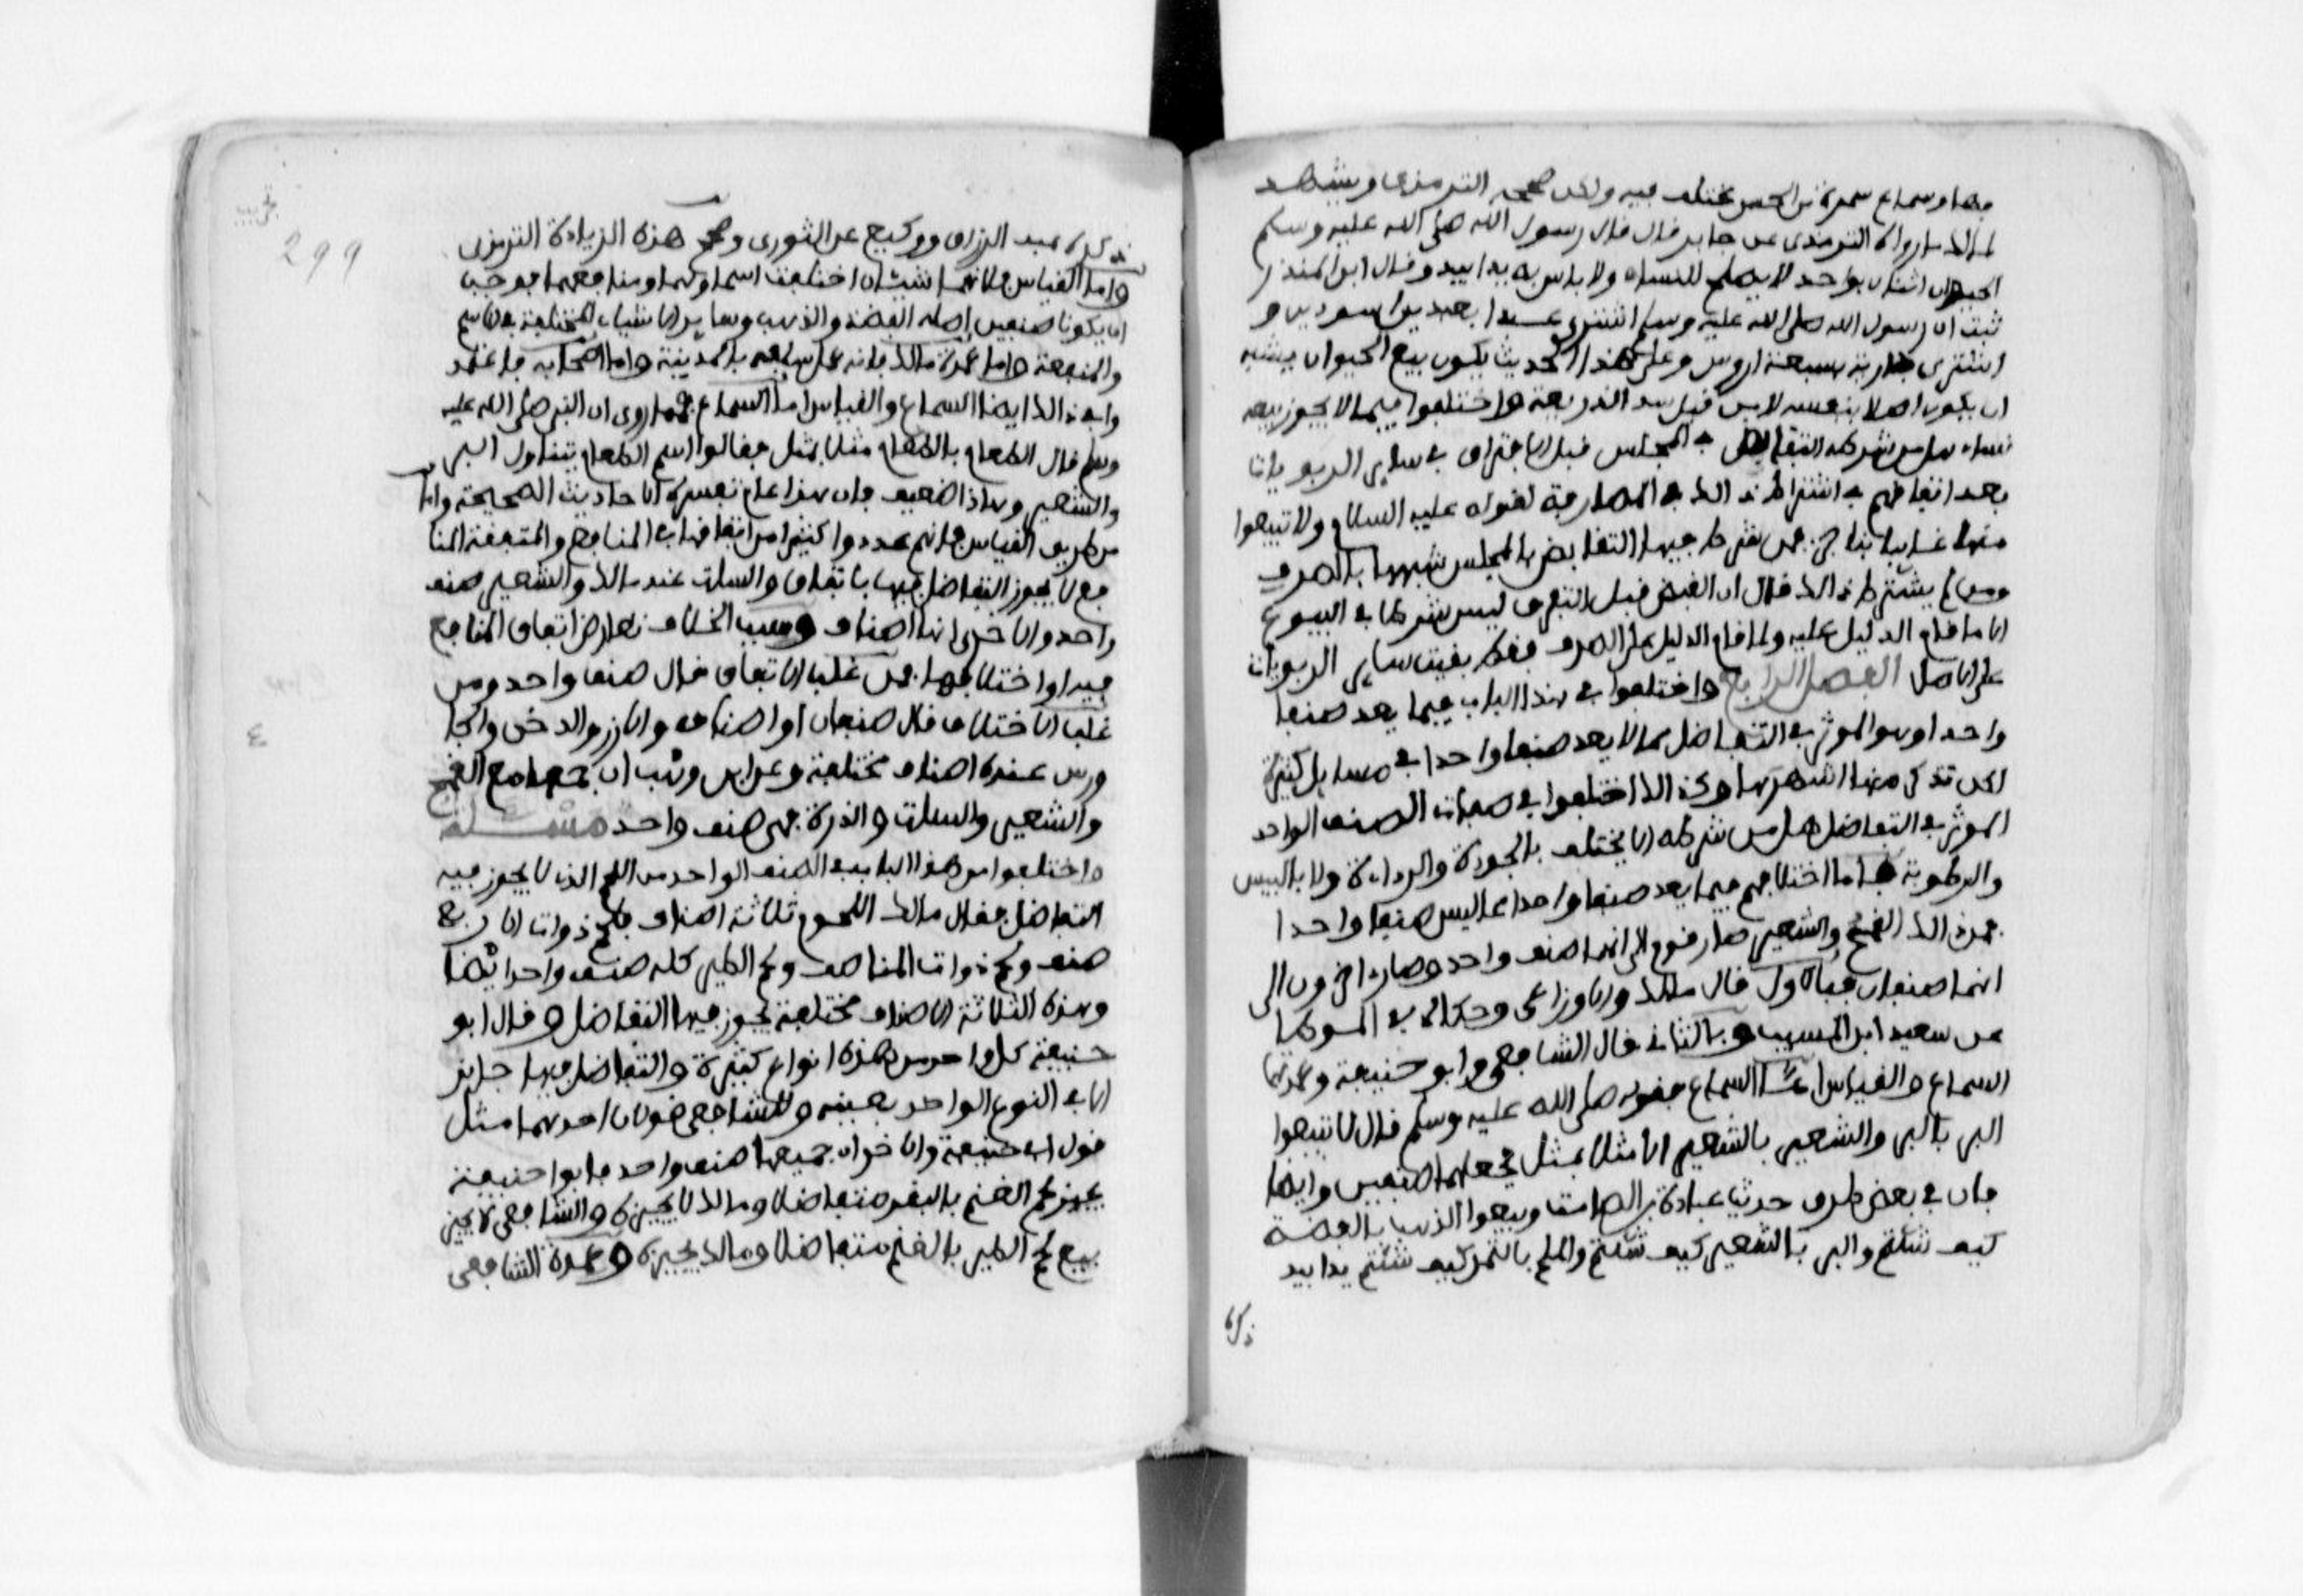 بها وسماع سمرة من الحسن مختلف فيه ولكن صححه الترمذي ويشهد
لمالك ما رواه الترمذي عن جابر قال قال رسول الله صلى الله عليه وسلم
الحيوان اثنان بواحد لا يصلح للنساء ولا باس به يدا بيد وقال ابن المنذر
ثبت ان رسول الله صلى الله عليه وسلم اشترى عبدا بعبدين اسودين و
اشترى جارية بسبعة اروس وعلى هذا الحديث يكون بيع الحيوان يشبه
ان يكون اصلا بنفسه لا من قبل سد الذريعة واختلفوا فيما لا يجوز بيعه
نساء هل من شرطه التقابض في المجلس قبل الافتراق في ساير الربويات
بعد اتفاقهم في اشتراط ذالك في المصارفة لقوله عليه السلام ولا تبيعوا
منها غايبا بناجز فمن شرط فيها التقابض في المجلس شبهها بالصرف
ومن لم يشترط ذالك قال ان القبض قبل التفرق ليس شرطا في البيوع
الا ما قام الدليل عليه ولما قام الدليل على الصرف فقط بقيت ساير الربويات
على الاصل الفصل الرابع واختلفوا في هذا الباب فيما يعد صنفا
واحدا وهو الموثر في التفاضل مما لا يعد صنفا واحدا في مسايل كثيرة
لكن نذكر منها اشهرها وكذالك اختلفوا في صفات الصنف الواحد
الموثر في التفاضل هل من شرطه الا يختلف بالجودة والرداءة ولا باليبس
والرطوبة فاما اختلافهم فيما يعد صنفا واحدا مما ليس صنفا واحدا
فمن ذالك القمح والشعير صار قوم الى انهما صنف واحد وصار اخرون الى
انهما صنفان فبالاول قال مالك والاوزاعي وحكاه في الموطا
عن سعيد ابن المسيب وبالثاني قال الشافعي وابو حنيفة وعمدتهما
السماع والقياس اما السماع فقوله صلى الله عليه وسلم قال لا تبيعوا
البر بالبر والشعير بالشعير الا مثلا بمثل فجعلهما صنفين وايضا
فان في بعض طرق حديث عبادة بن الصامت وبيعوا الذهب بالفضة
كيف شئتم والبر بالشعير كيف شئتم والملح بالتمر كيف شئتم يدا بيد
ذكره
299
ذكره عبد الرزاق ووكيع عن الثوري وصحح هذه الزيادة الترمذي
واما القياس فلانهما شيئان اختلفت اسماوهما ومنافعهما فوجب
ان يكونا صنفين اصله الفضة والذهب وساير الاشياء المختلفة في الاسم
والمنفعة واما عمدة مالك فانه عمل سلفه بالمدينة واما اصحابه فاعتمد
وا في ذالك ايضا السماع والقياس اما السماع فما روي ان النبي صلى الله عليه
وسلم قال الطعام بالطعام مثلا بمثل فقالوا اسم الطعام يتناول البر
والشعير وهاذا ضعيف فان هذا عام تفسره الاحاديث الصحيحة واما
من طريق القياس فانهم عددوا كثيرا من اتفاقها في المنافع والمتفقة المنا
فع لا يجوز التفاضل فيها باتفاق والسلت عند مالك والشعير صنف
واحد والاخرى انها اصناف وسبب الخلاف تعارض اتفاق المنافع
فيها واختلافها فمن غلب الاتفاق قال صنف واحد ومن
غلب الاختلاف قال صنفان او اصناف والارز والدخن والجا
ورس عنده اصناف مختلفة وعن ابن وهب ان جمعها مع القمح
والشعير والسلت والذرة فهي صنف واحد مسئلة
واختلفوا من هذا الباب في الصنف الواحد من اللحم الذي لا يجوز فيه
التفاضل فقال مالك اللحوم ثلاثة اصناف فلحم ذوات الاربع
صنف ولحم ذوات الماء صنف ولحم الطير كله صنف واحد ايضا
وهذه الثلاثة الاصناف مختلفة يجوز فيها التفاضل وقال ابو
حنيفة كل واحد من هذه انواع كثيرة والتفاضل فيها جايز
الا في النوع الواحد بعينه وللشافعي قولان احدهما مثل
قول ابي حنيفة والاخر ان جميعها صنف واحد فابو حنيفة
يجيز لحم الغنم بالبقر متفاضلا ومالك لا يجيزه والشافعي لا يجيز
بيع لحم الطير بالغنم متفاضلا ومالك يجيزه وعمدة الشافعي